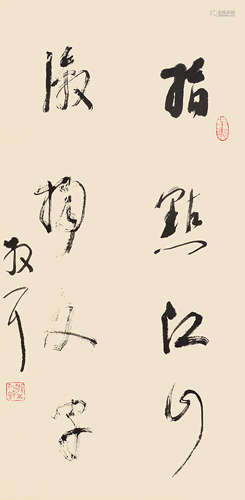 指點江山
激揚文字
散耳